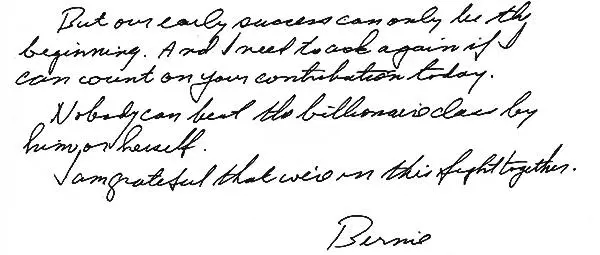 But our early success can only be the
beginning. And I need to ask again if I
can count on your contribution today.
Nobody can beat the billionaire class by
him, or herself.
I am grateful that we're in this fight together.
Bernie